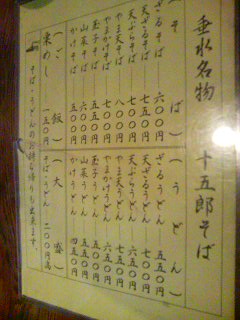 垂水名物　十五郎そば
（そば）
ざるそば　六〇〇円
天ざるそば　七五〇円
天ぷらそば　七〇〇円
やま天そば　八〇〇円
やまかけそば　七〇〇円
玉子そば　五五〇円
山菜そば　六〇〇円
かけそば　五〇〇円
（ご飯）
栗めし　一五〇円
（うどん）
ざるうどん　五五〇円
天ざるうどん　七〇〇円
天ぷらうどん　六五〇円
やま天うどん　七五〇円
やまかけうどん　六五〇円
玉子うどん　五〇〇円
山菜うどん　五五〇円
かけうどん　四五〇円
（大盛）
そば・うどん　二〇〇円高
そば・うどんのお持ち帰りも出来ます。